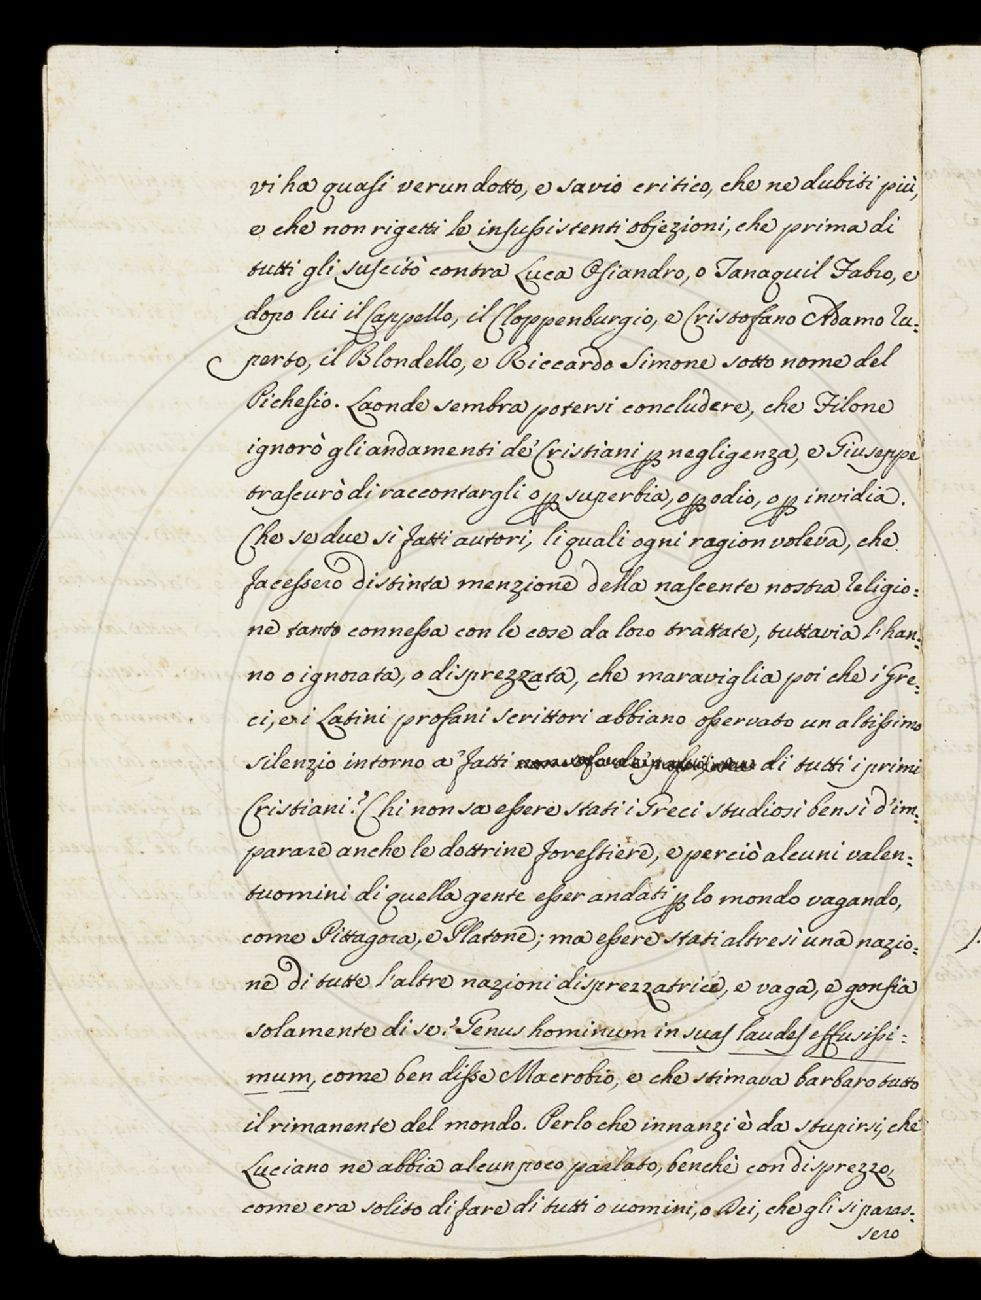 vi ha quasi verun dotto, e savio critico, che ne dubiti più,
e che non rigetti le insussistenti objezioni, che prima di
tutti gli suscitò contra Luca Osiandro, o Tanaquil Fabro, e
dopo lui il Cappello, il Cloppenburgio, e Cristofano Adamo Ru-
perto, il Blondello, e Riccardo Simone sotto nome del
Pichesio. Laonde sembra potersi concludere, che Filone
ignorò gli andamenti de' Cristiani p negligenza, e Giuseppe
trascurò di raccontargli o p superbia, o p odio, o p invidia.
Che se due sì fatti autori, li quali ogni ragion voleva, che
facessero distinta menzione della nascente nostra Religio=
ne tanto connessa con le cose da loro trattate, tuttavia l'han=
no o ignorata, o disprezzata, che maraviglia poi che i Gre=
ci, e i Latini profani scrittori abbiano osservato un altissimo
silenzio intorno a' fatti di tutti i primi
Cristiani? Chi non sa essere stati i Greci studiosi bensì d'im=
parare anche le dottrine forestiere, e perciò alcuni valen=
tuomini di quella gente esser andati p lo mondo vagando,
come Pittagora, e Platone; ma essere stati altresì una nazio=
ne di tutte l'altre nazioni disprezzatrice, e vaga, e gonfia
solamente di se? Genus hominum in suas laudes effusissi=
mum, come ben disse Macrobio, e che stimava barbaro tutto
il rimanente del mondo. Perlo che innanzi è da stupirsi, che
Luciano ne abbia alcun poco parlato, benchè con disprezzo,
come era solito di fare di tutti o uomini, o Dei, che gli si paras=
sero